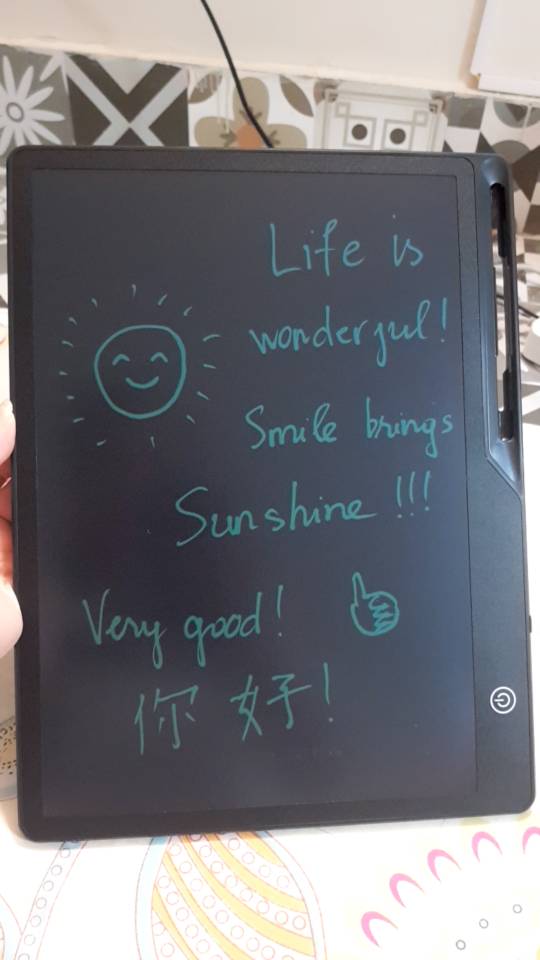 Life is
wonderful!
Smile brings
Sunshine !!!
Very good!
你好!